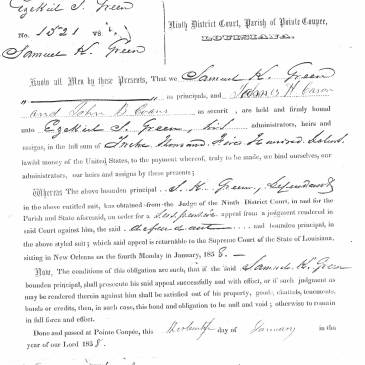 Ezekiel S. Green
No. 1521 vs
Samuel K. Green
Ninth District Court, Parish of Pointe Coupee,
LOUISIANA.
Know all Men by these Presents, That we Samuel K. Green
as principal, and James H. Cason
and John B Evans as securit , are held and firmly bound
unto Ezekiel S. Green, his administrators, heirs and
assigns, in the full sum of Twelve Thousand Five Hundred Dollars,
lawful money of the United States, to the payment whereof, truly to be made, we bind ourselves, our
administrators, our heirs and assigns by these presents;
Whereas The above bounden principal S. K. Green, Defendant
in the above entitled suit, has obtained from the Judge of the Ninth District Court, in and for the
Parish and State aforesaid, an order for a suspensive appeal from a judgment rendered in
said Court against him, the said defendant and bounden principal, in
the above styled suit; which said appeal is returnable to the Supreme Court of the State of Louisiana,
sitting in New Orleans on the fourth Monday in January, 1858.
Now, The conditions of this obligation are such, that if the said Samuel K. Green
bounden principal, shall prosecute his said appeal successfully and with effort, or if such judgment as
may be rendered therein against him shall be satisfied out of his property, goods, chattels, tenements,
bonds or credits, then, in such case, this bond and obligation to be null and void; otherwise to remain
in full force and effect.
Done and passed at Pointe Coupée, this day of January in the
year of our Lord 1858.